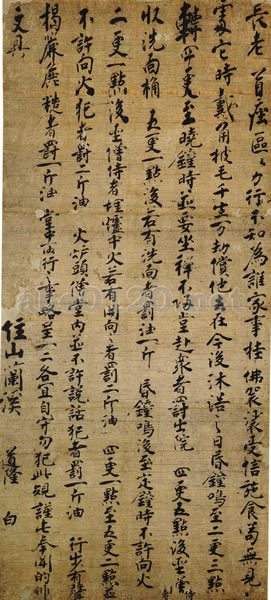 長老首座區々力行不知為誰家事挂佛袈裟受信施食苟無見
處它時戴角披毛千生万劫償他去在今後沐浴之日昏鐘鳴至二更三點
轉寮四更至曉鐘時並要坐禅不歸堂赴衆者罰出院 四更
収洗面桶 五更一點後若有洗面者罰油一斤 昏鐘鳴後至定鐘時不許向火
二更一點後並僧侍者埋爐中火若有開向之者罰一斤油 四更一點至五更二點並
不許向火犯者罰一斤油 火爐頭僧堂内並不許說話犯者罰一斤油 行步有聲
揭簾麁糙者罰一斤油 堂中所行之事略呈一二各宜自守勿犯此規謹此奉聞
文具
住山蘭溪 道隆 白